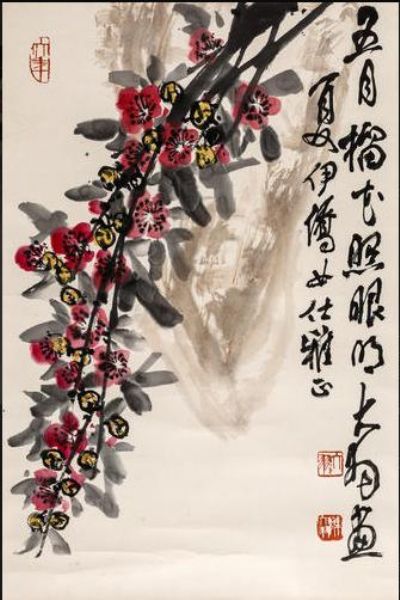 五月榴花照眼明大羽画
夏伊女仕雅正